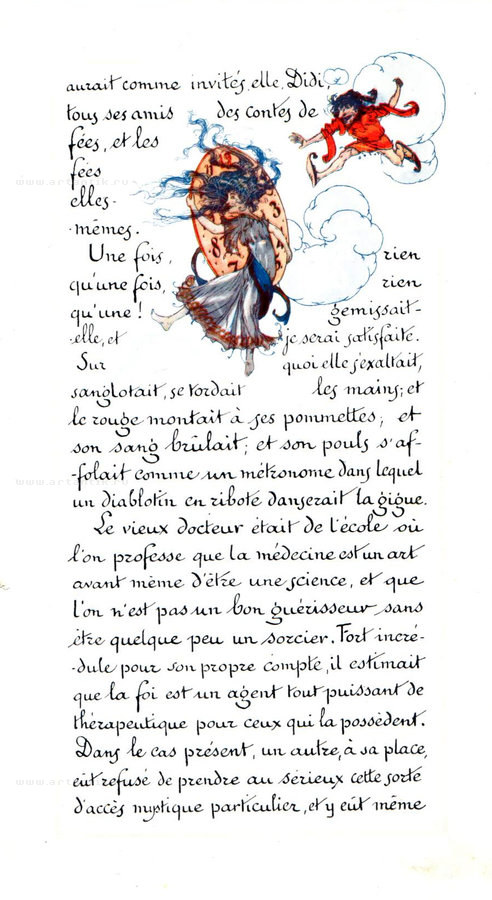 aurait comme invités, elle, Didi,
tous ses amis des contes de
fées, et les
fées
elles-
-mêmes.
Une fois, rien
qu'une fois, rien
qu'une ! gemissait-
-elle, et je serai satisfaite.
Sur quoi elle s'exaltait,
sanglotait, se tordait les mains; et
le rouge montait à ses pommettes; et
son sang brûlait; et son pouls s'af-
-folait comme un métronome dans lequel
un diablotin en ribote danserait la gigue.
Le vieux docteur était de l'école où
l'on professe que la médecine est un art
avant même d'être une science, et que
l'on n'est pas un bon guérisseur sans
être quelque peu un sorcier. Fort incré-
-dule pour son propre compte, il estimait
que la foi est un agent tout puissant de
thérapeutique pour ceux qui la possèdent.
Dans le cas présent, un autre, à sa place,
eût refusé de prendre au sérieux cette sorte
d'accès mystique particulier, et y eût même